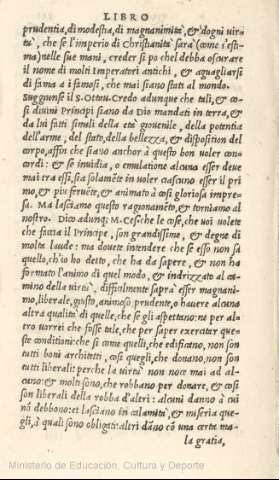 LIBRO
prudentia, di modestia, di magnanimità, & d'ogni uir-
tù, che se l'imperio di Christianità sarà (come s'esti-
ma) nelle sue mani, creder si po ch'el debba oscurare
il nome di molti Imperatori antichi, & aguagliarsi
di fama a i famosi, che mai siano stati al mondo.
Suggiunse il S. Ottau. Credo adunque che tali, & co-
si diuini Principi siano da Dio mandati in terra, &
da lui fatti simili della età giouenile, della potentia
dell'arme, del stato, della bellezza, & disposition del
corpo, affin che siano anchor a questo bon uoler con-
cordi: & se inuidia, o emulatione alcuna esser deue
mai tra essi, sia solamẽte in uoler ciascuno esser il pri-
mo, & piu feruẽte, & animato à cosi gloriosa impre-
sa. Ma lasciamo questo ragionamẽto, & torniamo al
nostro. Dico adunq; M. Cesche le cose, che uoi uolete
che faccia il Principe, son grandissime, & degne di
molte laude: ma douete intendere che se esso non sa
quello, ch'io ho detto, che ha da sapere, & non ha
formato l'animo di quel modo, & indrizzato al ca-
mino della uirtù, difficilmente saprà esser magnani-
mo, liberale, giusto, animoso prudente, o hauere alcuna
altra qualità di quelle, che se gli aspettano: ne per al-
tro uorrei che fosse tale, che per saper exercitar que-
ste conditioni: che si come quelli, che edificano, non son
tutti boni architetti, cosi quegli, che donano, non son
tutti liberali: perche la uirtù non noce mai ad al-
cuno: & molti sono, che robbano per donare, & cosi
son liberali della robba d'altri: alcuni danno à cui
nõ debbono: et lasciano in calamità, & miseria que-
gli, à quali sono obligati: altri dãno cõ una certa ma-
la gratia,
Ministerio de Educación, Cultura y Deporte